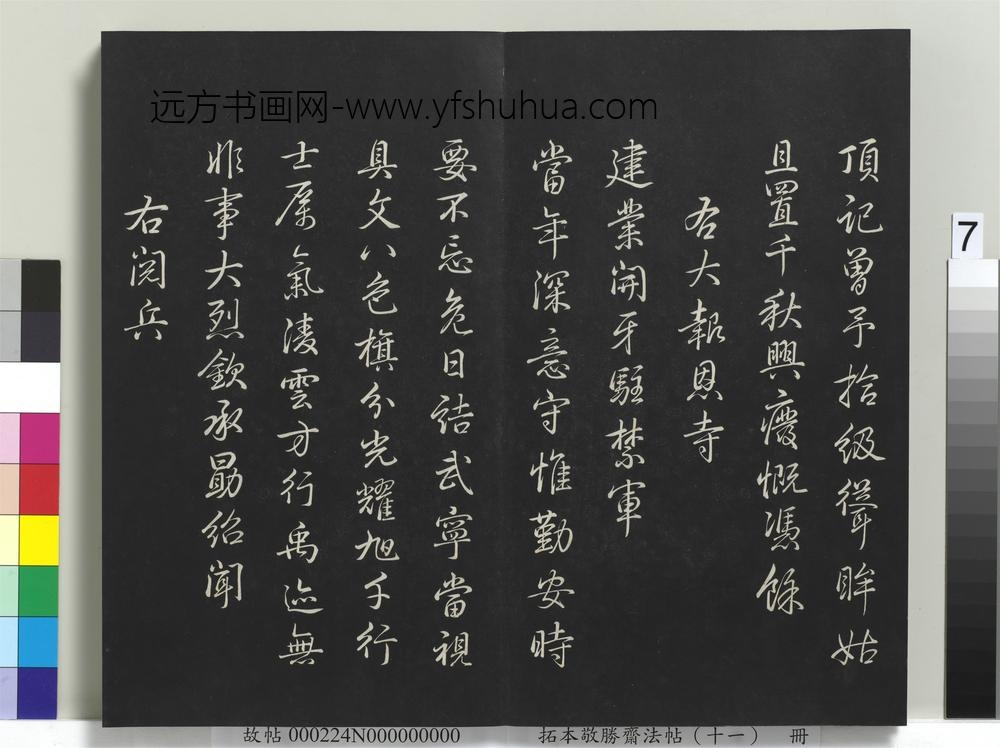 远方书画网-www.yfshuhua.com
頂記曾予拾級聳眸姑
且置千秋興廢慨憑餘
右大報恩寺
建業開牙駐禁軍
當年深意守惟勤安時
要不忘危日詰武寧當視
具文八色旗分光耀旭千行
士厲氣凌雲方行禹迹無
非事大烈欽承勗紹聞
右閱兵
7
故帖 000224N000000000
拓本敬勝齋法帖（十一） 冊